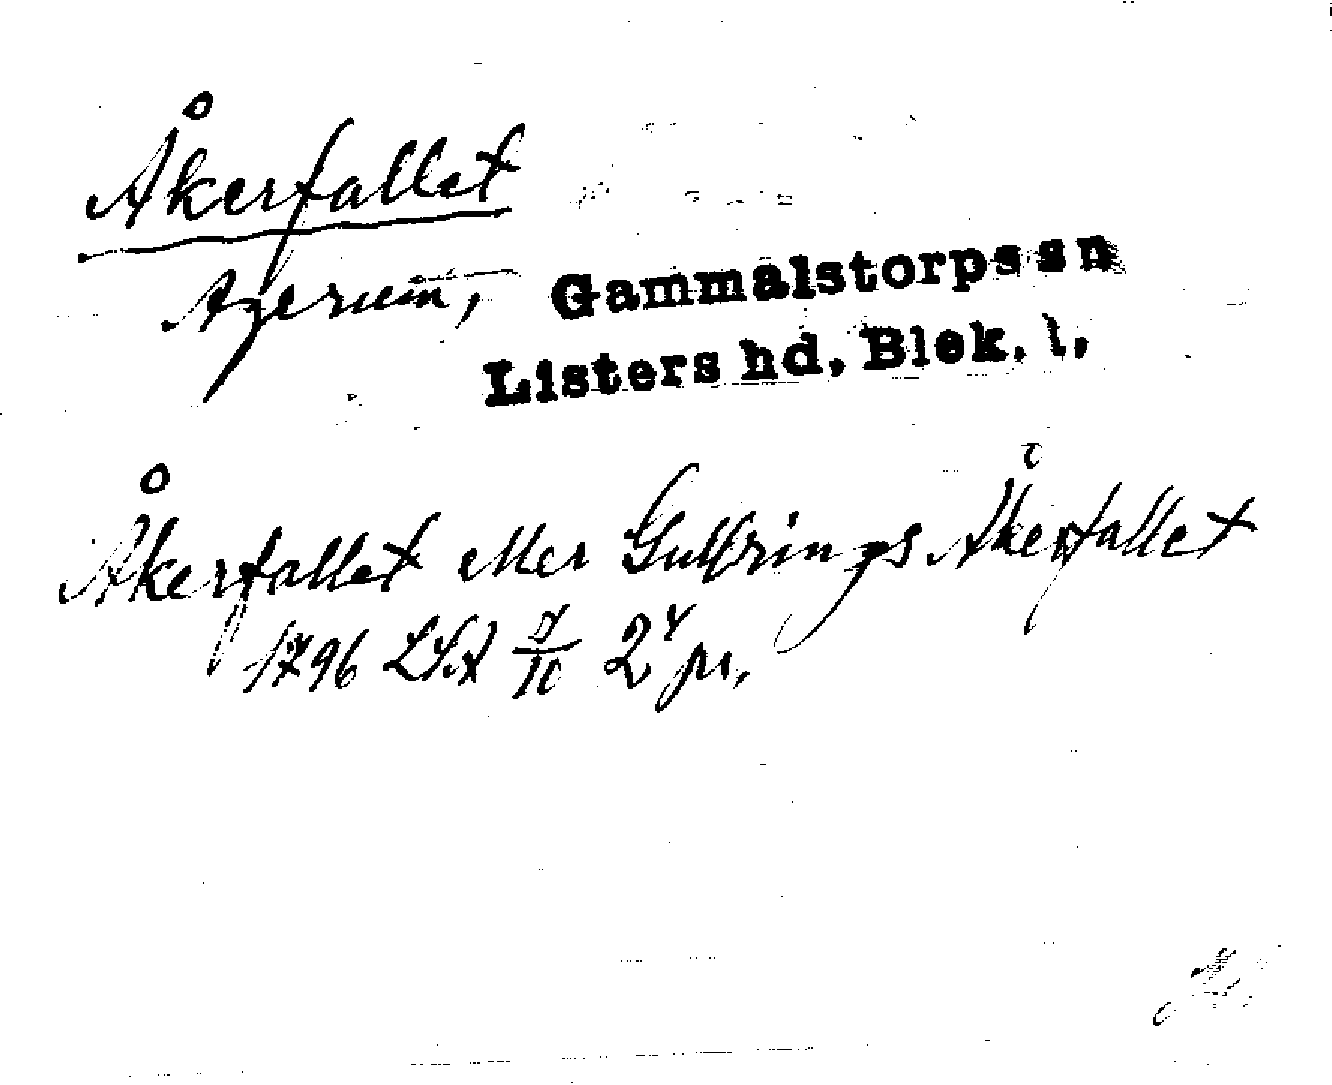 Åkerfallet
Agerum, Gammalstorps sn
Listers hd, Blek. l,
Åkerfallet eller Gullrings Åkerfallet
1796 LSA 7/10 2 pr,